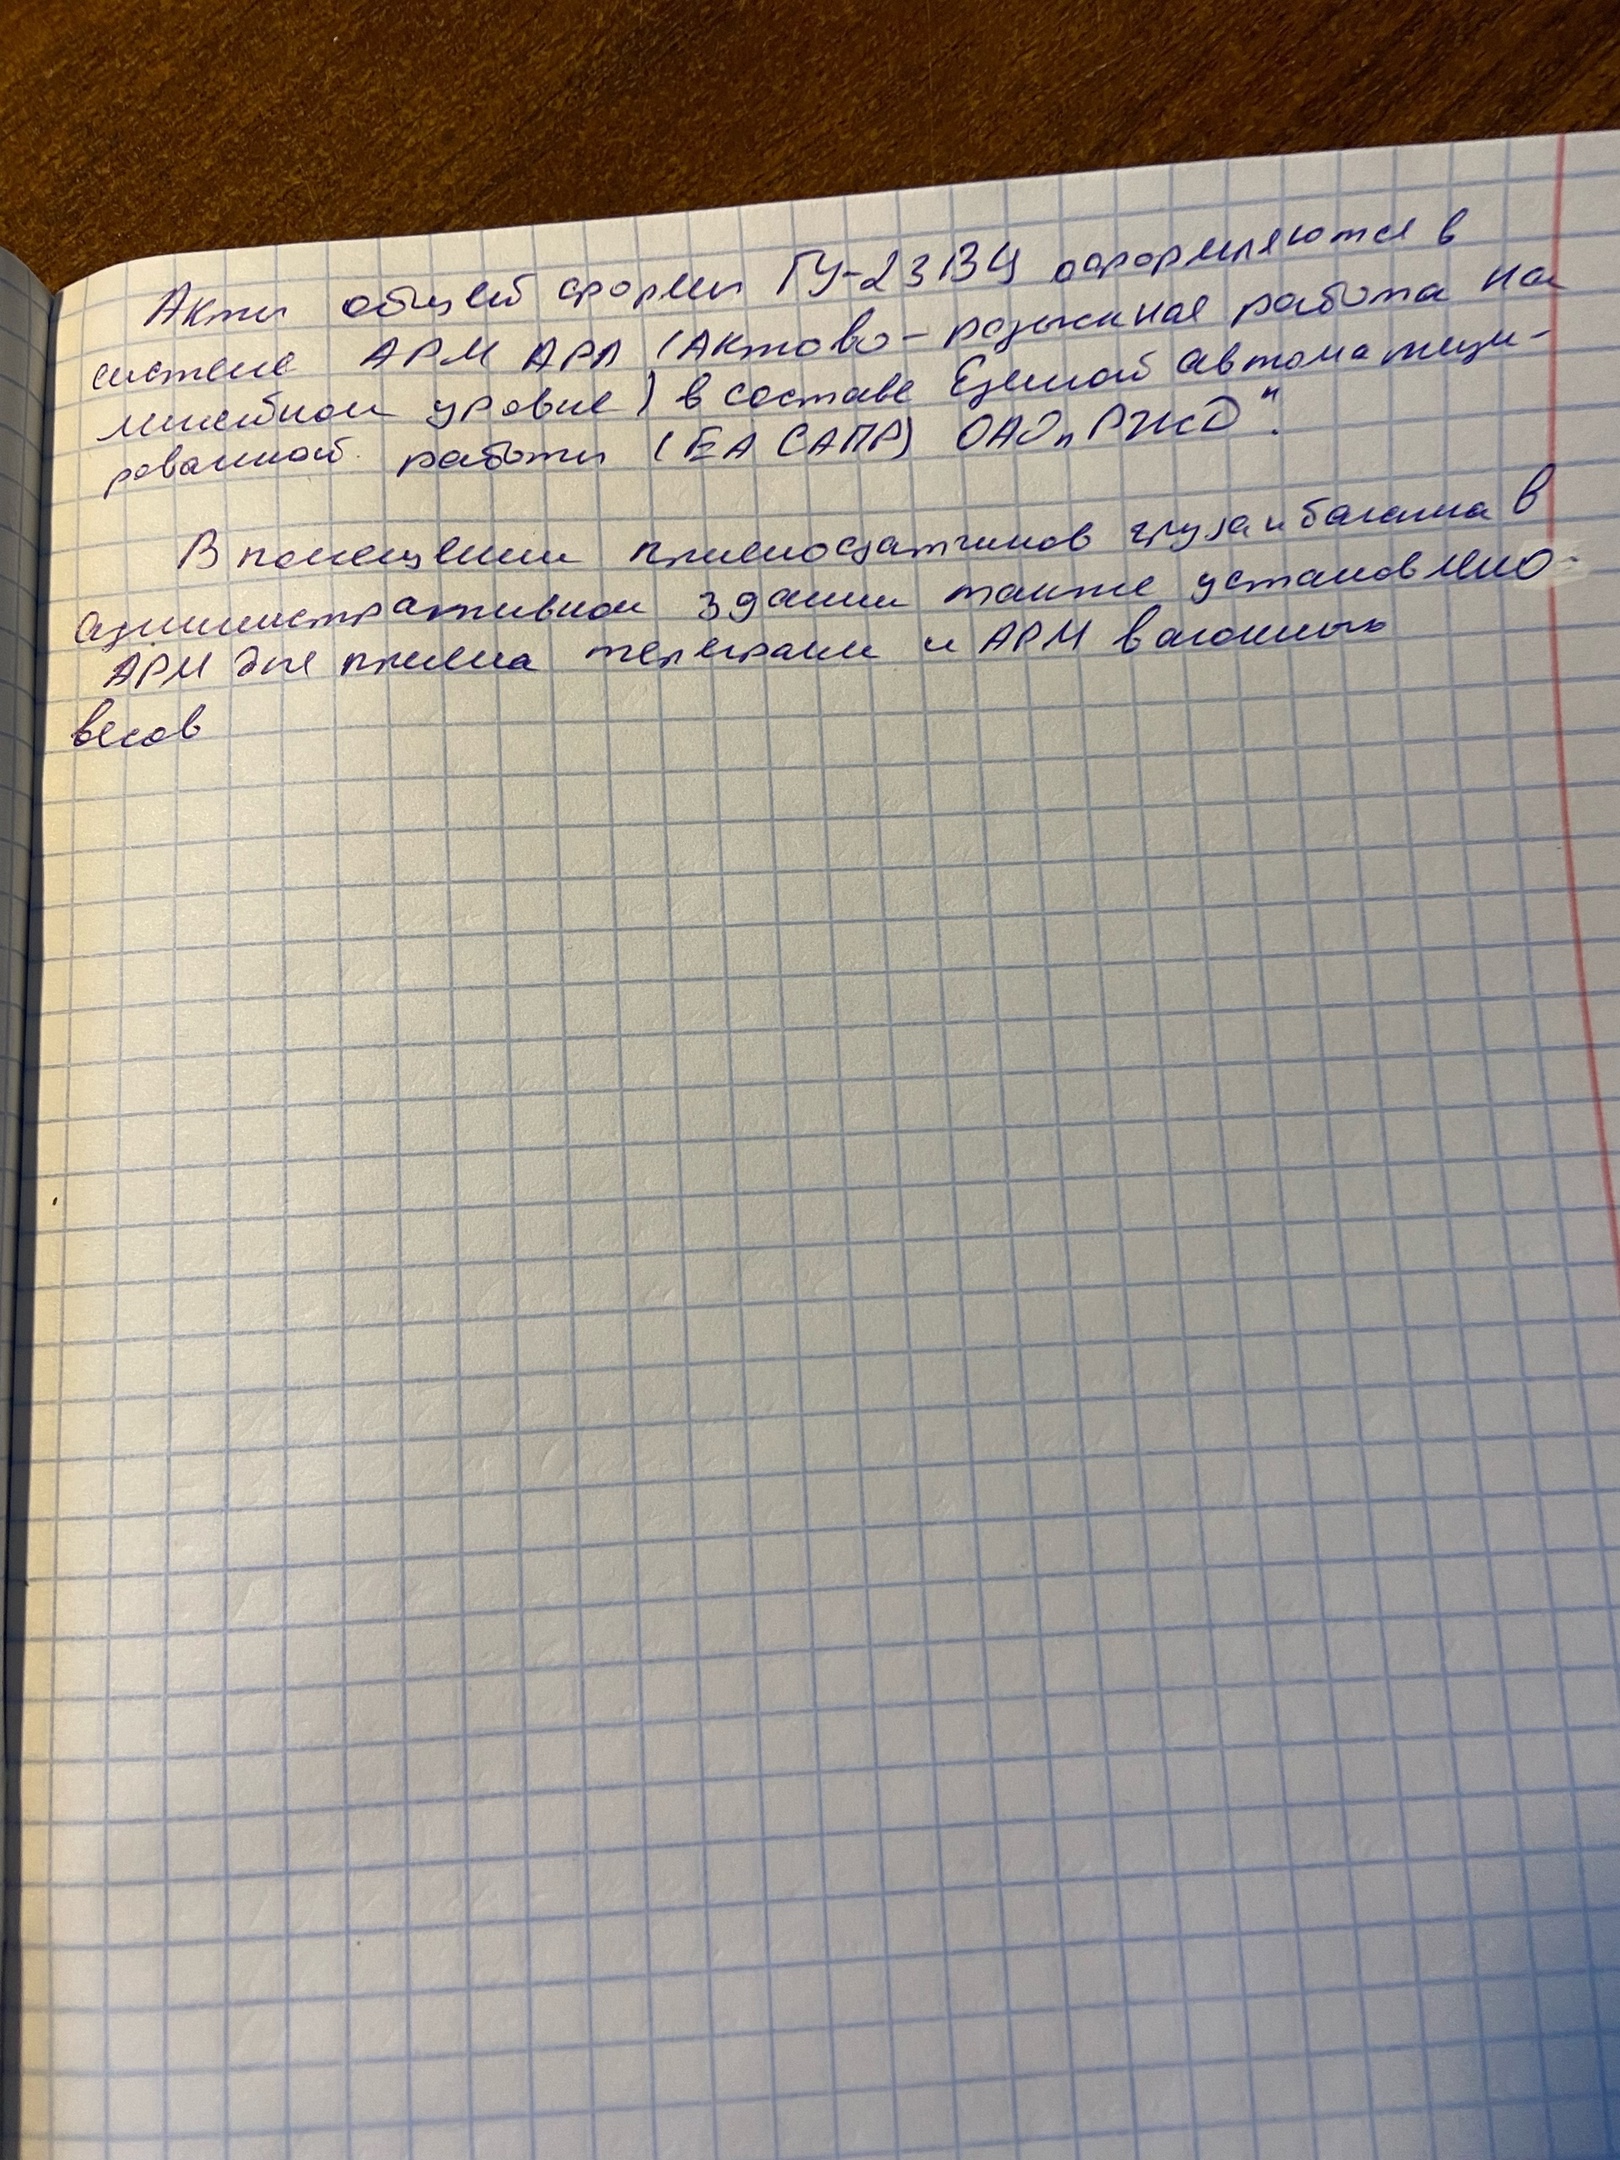 Акты общей формы ГУ-23ВЦ оформляются в
системе АРМ АРЛ (Актово-розыскная работа на
линейном уровне) в составе Единой автоматизи-
рованной работы (ЕА САПР) ОАО „РЖД".
В помещении приемосдатчиков груза и багажа в
административном здании также установлено
АРМ для приема телеграмм и АРМ вагонных
весов